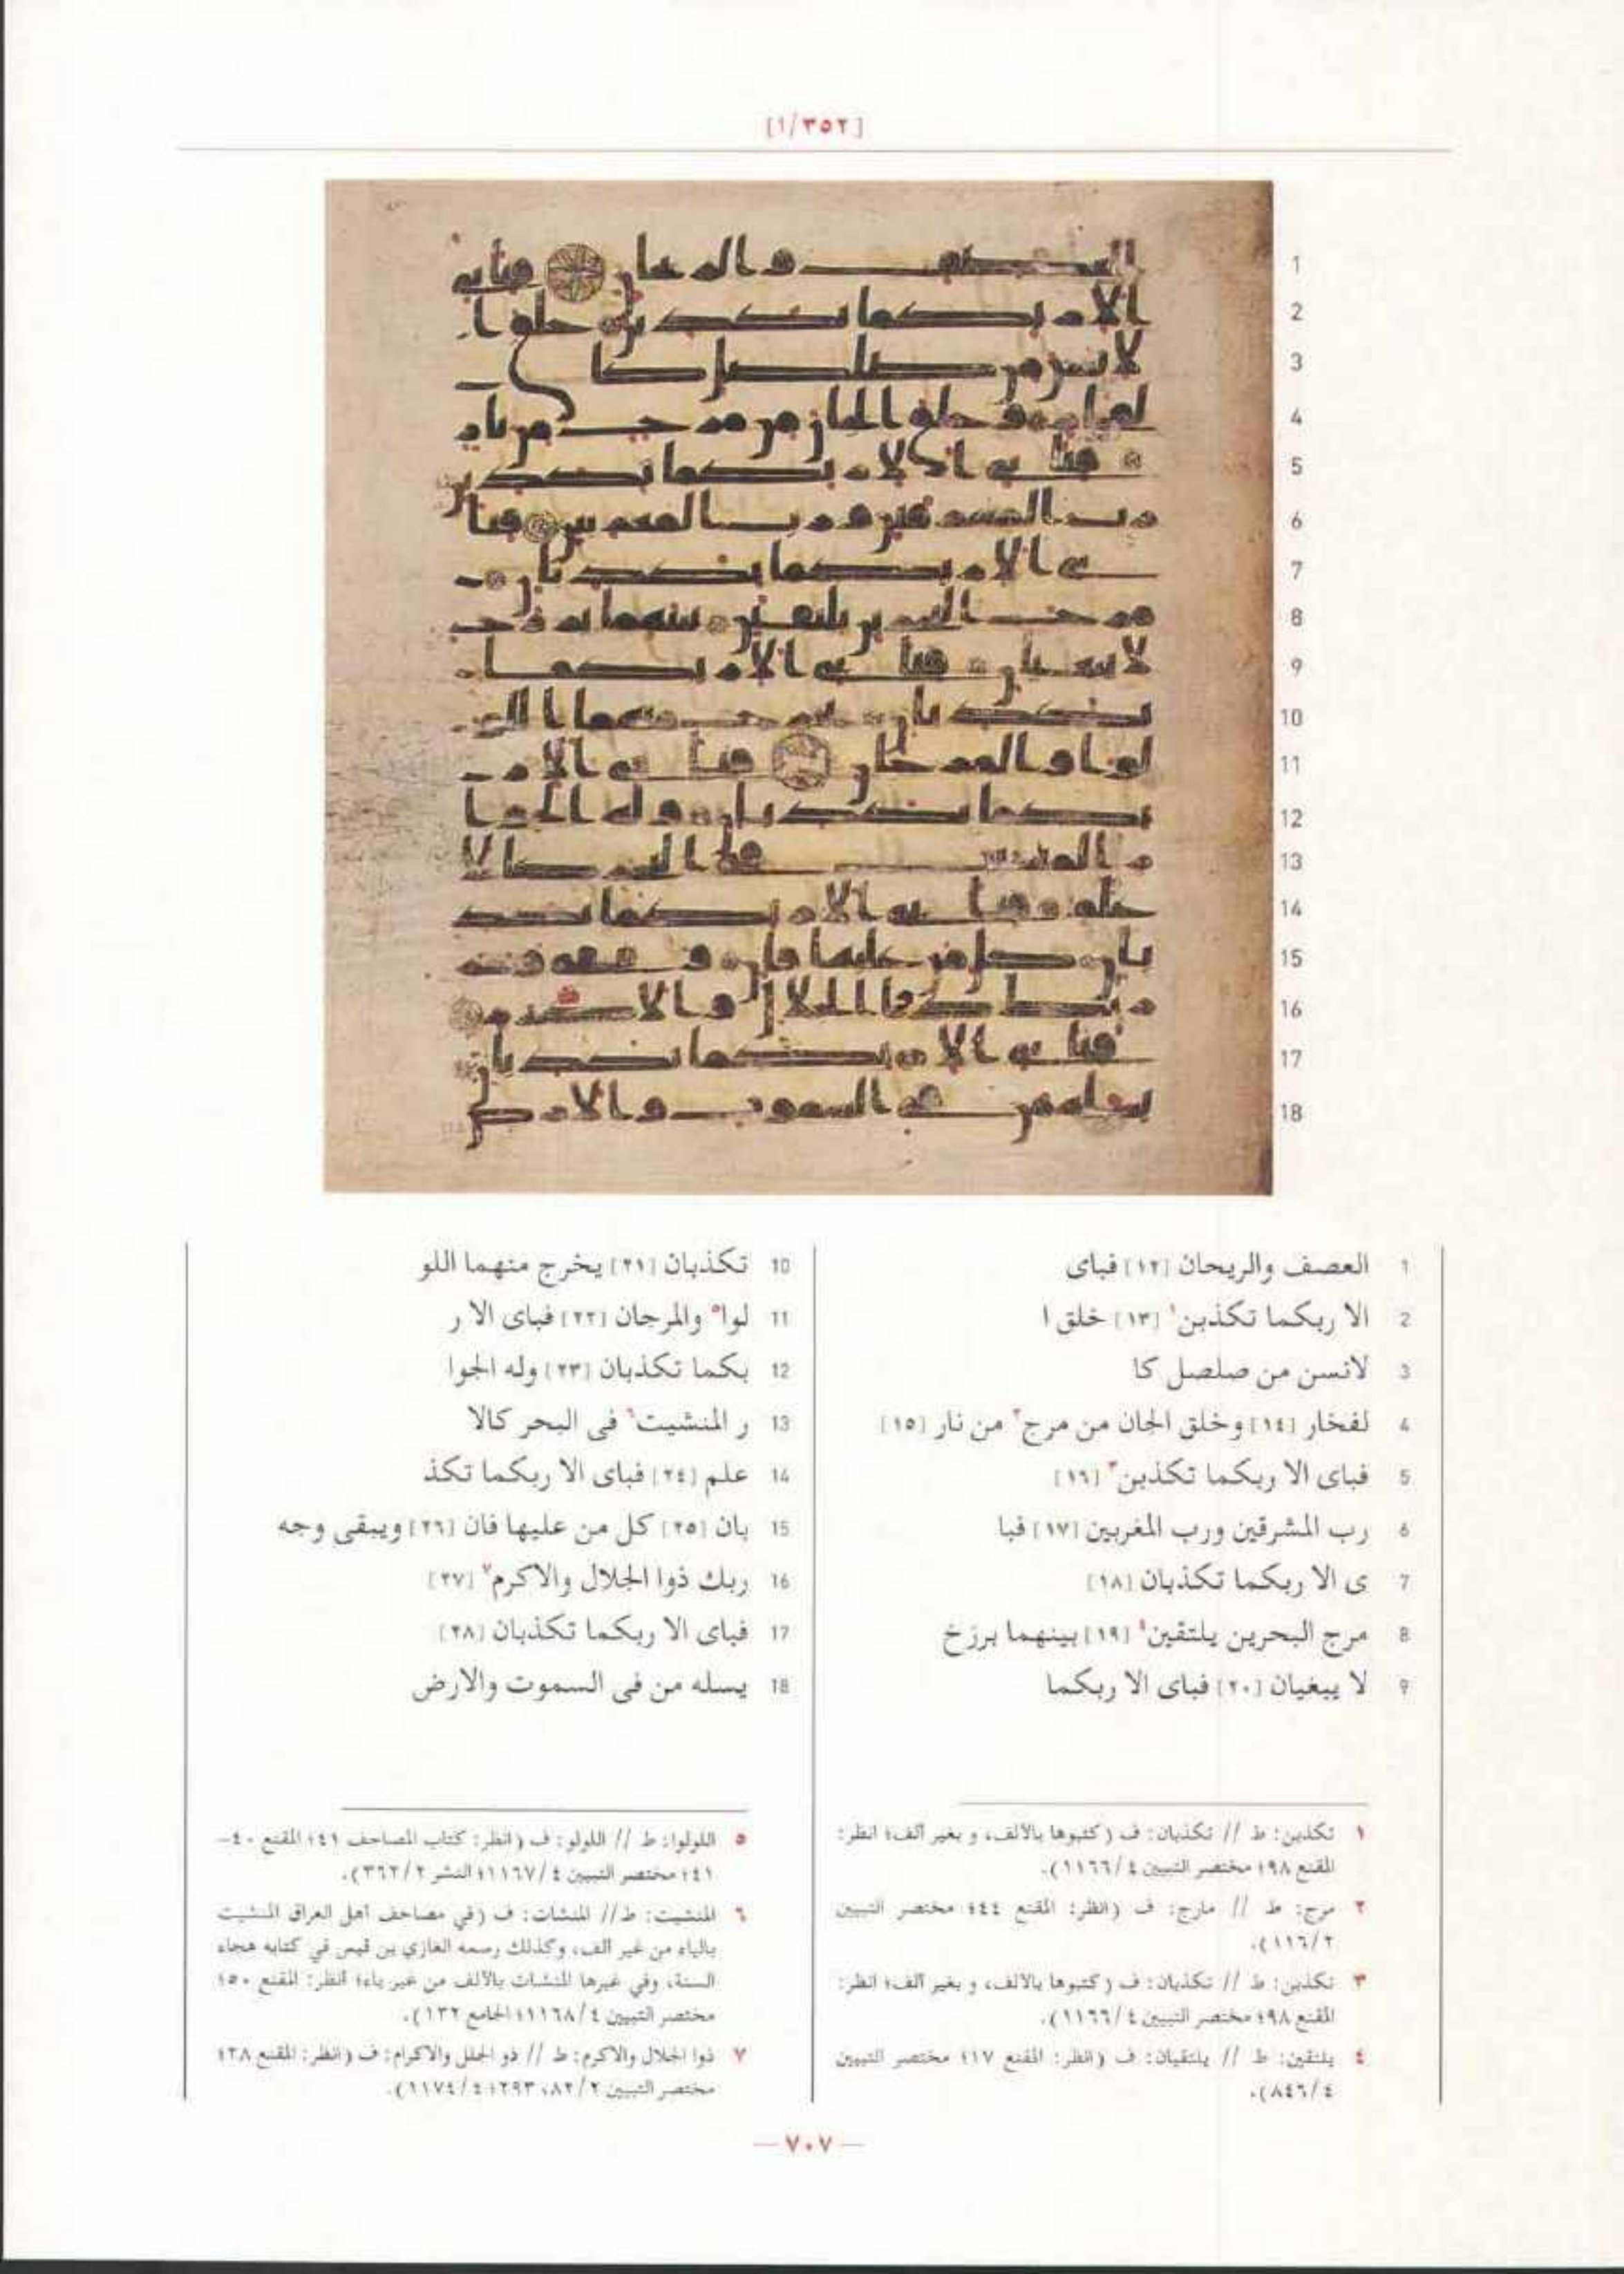 [١/٣٥٢]
1
2
3
4
5
6
7
8
9
10
11
12
13
14
15
16
17
18
1 العصف والريحان [١٢] فباى
2 الا ربكما تكذبن١ [١٣] خلق ا
3 لانسن من صلصل كا
4 لفخار [١٤] وخلق الجان من مرج٢ من نار [١٥]
5 فباى الا ربكما تكذبن٣ [١٦]
6 رب المشرقين ورب المغربين [١٧] فبا
7 ى الا ربكما تكذبان [١٨]
8 مرج البحرين يلتقين٤ [١٩] بينهما برزخ
9 لا يبغيان [٢٠] فباى الا ربكما
10 تكذبان [٢١] يخرج منهما اللو
11 لوا٥ والمرجان [٢٢] فباى الا ر
12 بكما تكذبان [٢٣] وله الجوا
13 ر المنشيت٦ فى البحر كالا
14 علم [٢٤] فباى الا ربكما تكذ
15 بان [٢٥] كل من عليها فان [٢٦] ويبقى وجه
16 ربك ذوا الجلال والاكرم٧ [٢٧]
17 فباى الا ربكما تكذبان [٢٨]
18 يسله من فى السموت والارض
١ تكذبن: ط // تكذبان: ف (كتبوها بالألف، و بغير ألف؛ انظر:
المقنع ٩٨؛ مختصر التبيين ٤/١١٦٦).
٢ مرج: ط // مارج: ف (انظر: المقنع ٤٤؛ مختصر التبيين
٢/١١٦).
٣ تكذبن: ط // تكذبان: ف (كتبوها بالألف، و بغير ألف؛ انظر:
المقنع ٩٨؛ مختصر التبيين ٤/١١٦٦).
٤ يلتقين: ط // يلتقيان: ف (انظر: المقنع ١٧؛ مختصر التبيين
٤/٨٤٦).
٥ اللولوا: ط // اللولو: ف (انظر: كتاب المصاحف ٤١؛ المقنع ٤٠-
٤١؛ مختصر التبيين ٤/١١٦٧؛ النشر ٢/٣٦٢).
٦ المنشيت: ط// المنشات: ف (في مصاحف أهل العراق المنشيت
بالياء من غير ألف، وكذلك رسمه الغازي بن قيس في كتابه هجاء
السنة، وفي غيرها المنشات بالألف من غير ياء؛ انظر: المقنع ٥٠؛
مختصر التبيين ٤/١١٦٨؛ الجامع ١٣٢).
٧ ذوا الجلال والاكرم: ط // ذو الجلل والاكرام: ف (انظر: المقنع ٢٨؛
مختصر التبيين ٢/٨٢، ٢٩٣؛ ٤/١١٧٤).
— ٧٠٧ —